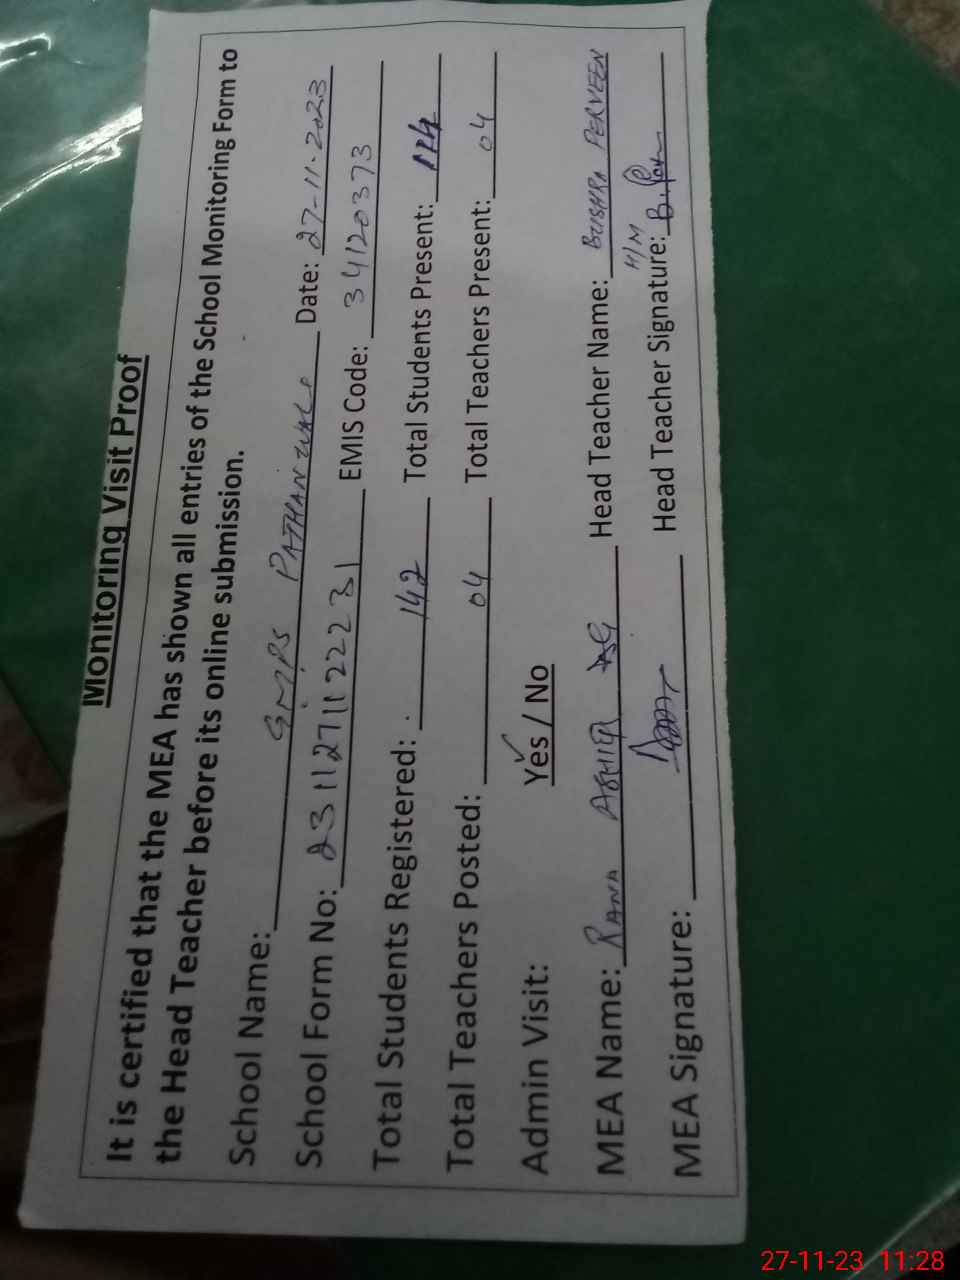 Monitoring Visit Proof
It is certified that the MEA has shown all entries of the School Monitoring Form to
the Head Teacher before its online submission.
School Name: GMPS PATHANWALI Date: 27-11-2023
School Form No: 231127112231 EMIS Code: 34120373
Total Students Registered: 142 Total Students Present: 114
Total Teachers Posted: 04 Total Teachers Present: 04
Admin Visit: Yes / No
MEA Name: RANA ASHIQ Head Teacher Name: BUSHRA PERVEEN
H/M
MEA Signature: Head Teacher Signature:
27-11-23 11:28